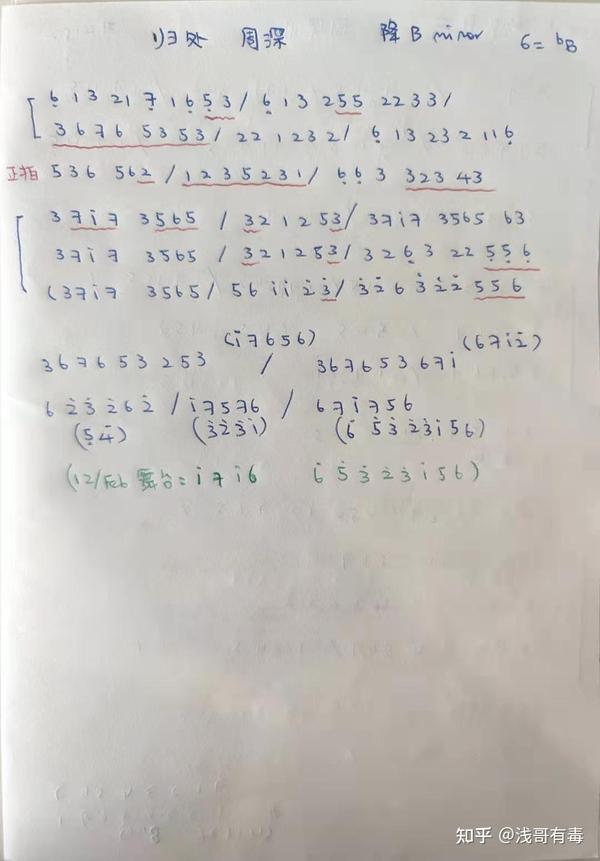 归处 周深 降B minor 6=ᵇB
6̣ 1 3 21 7̣ 1 6̣ 5̣ 3 / 6̣ 1 3 2 5 5 2 2 3 3 /
3 6 7 6 5 3 5 3 / 2 2 1 2 3 2 / 6̣ 1 3 2 3 2 1 1 6̣
正拍 5 3 6 5 6 2 / 1 2 3 5 2 3 1 / 6̣ 6̣ 3 3 2 3 4 3
3 7 i 7 3 5 6 5 / 3 2 1 2 5 3 / 3 7 i 7 3 5 6 5 6 3
3 7 i 7 3 5 6 5 / 3 2 1 2 5 3 / 3 2 6̣ 3 2 2 5̣ 5̣ 6̣
(3 7 i 7 3 5 6 5 / 5 6 i i 2̇ 3̇ / 3̇ 2̇ 6 3̇ 2̇ 2̇ 5 5 6
(i 7 6 5 6) (6 7 i 2̇)
3 6 7 6 5 3 2 5 3 / 3 6 7 6 5 3 6 7 i
6 2̇ 3̇ 2̇ 6 2̇ / i 7 5 7 6 / 6 7 i 7 5 6
(5̇ 4̇) (3̇ 2̇ 3̇ i) (6̇ 5̇ 3̇ 2̇ 3̇ i 5 6)
(12/Feb 舞台: i 7 i 6 6̇ 5̇ 3̇ 2̇ 3̇ i 5 6)
知乎 @浅哥有毒